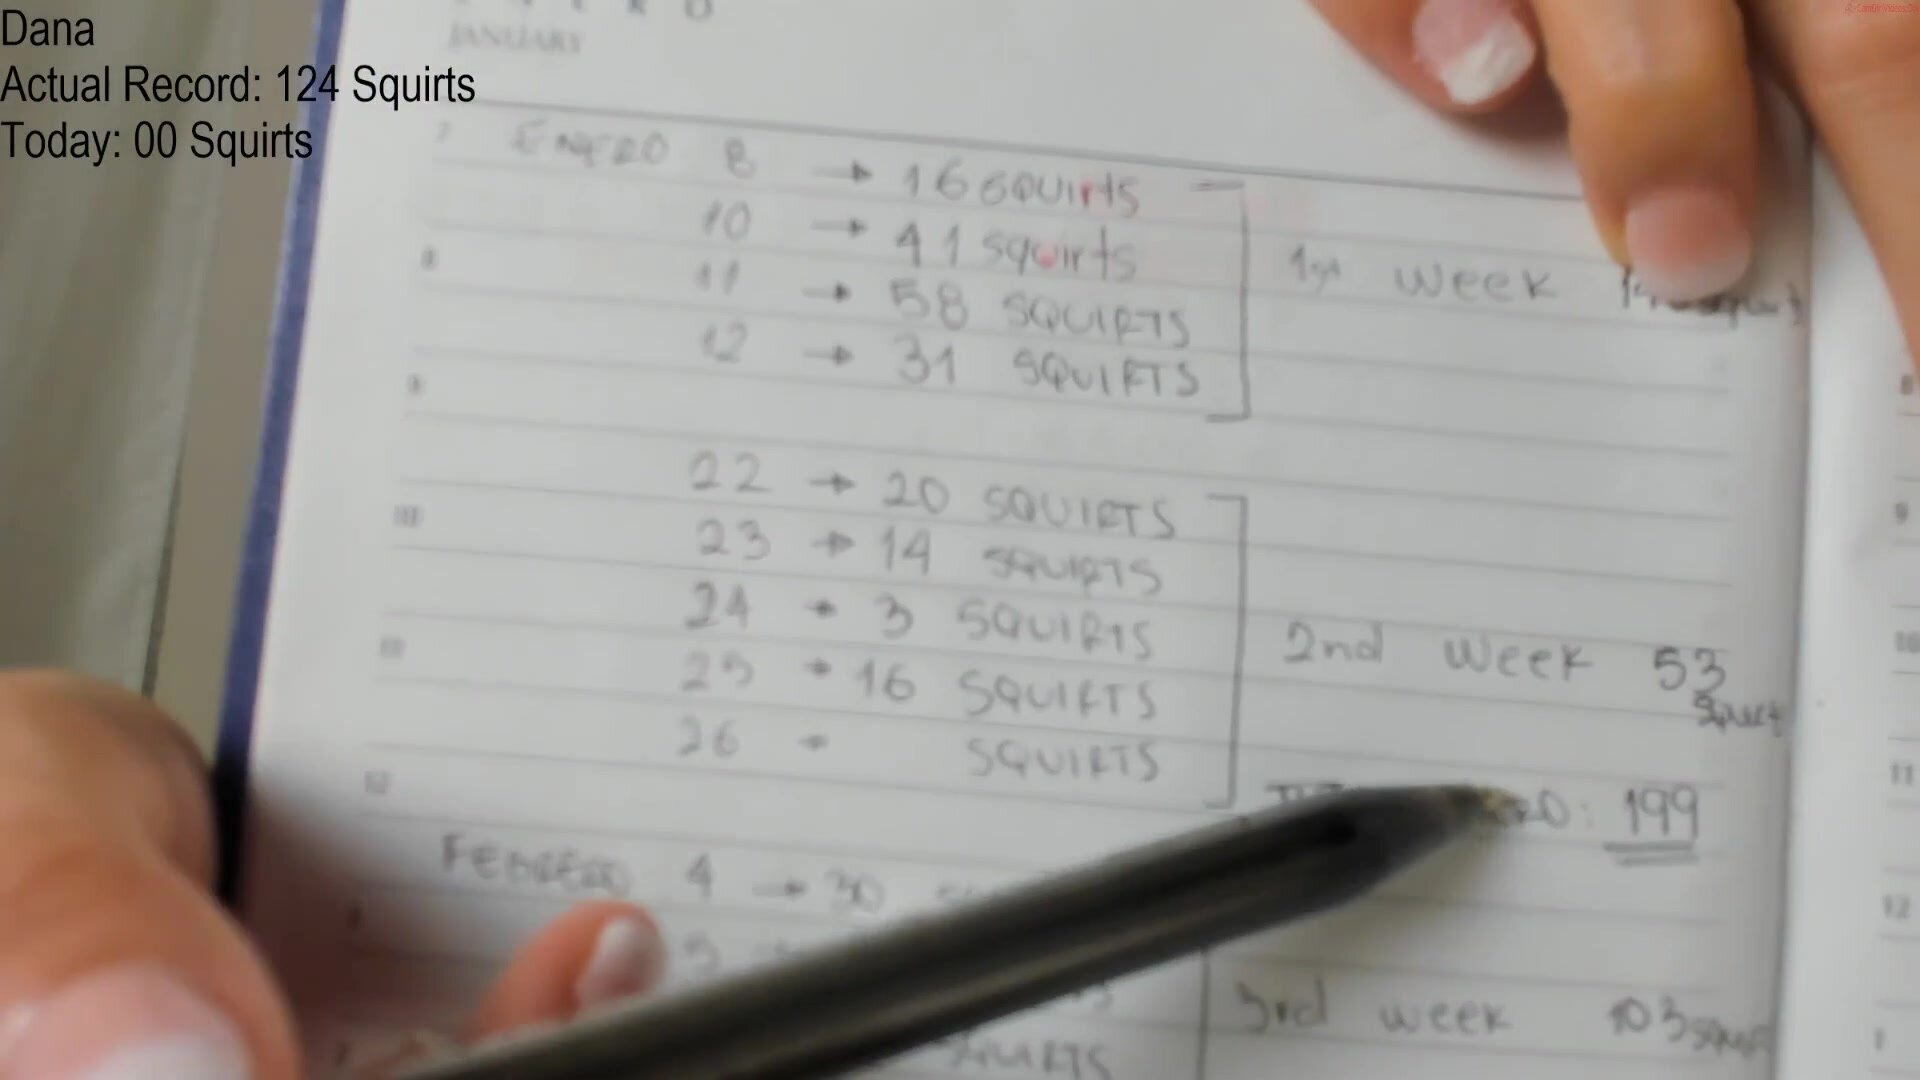 Dana
Actual Record: 124 Squirts
Today: 00 Squirts
JANUARY
7 ENERO 8 → 16 SQUIRTS
10 → 41 squirts
8 11 → 58 SQUIRTS
12 → 31 SQUIRTS
9
1st week
22 → 20 SQUIRTS
10 23 → 14 SQUIRTS
24 → 3 SQUIRTS
11 25 → 16 SQUIRTS
26 → SQUIRTS
2nd week 53
12
: 199
FEBRERO 4 → 30
5
3rd week 103
SQUIRTS
8
9
10
11
12
1